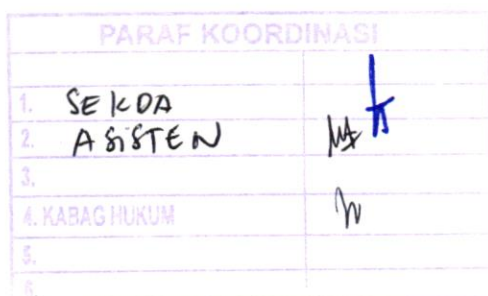 PARAF KOORDINASI
1. SEKDA
2. ASISTEN
3.
4. KABAG HUKUM
5.
6.